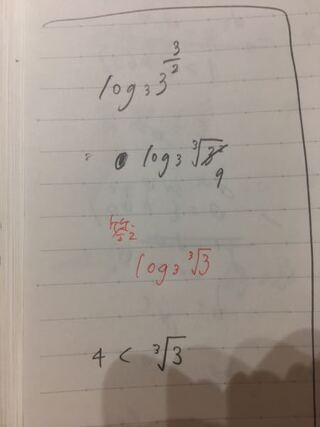 log₃3^{3/2}
log₃ ∛3² 9
log₃ ∛3
4 < ∛3